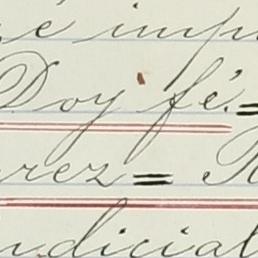 é imp
Doy fé.=
rez= R
udicial